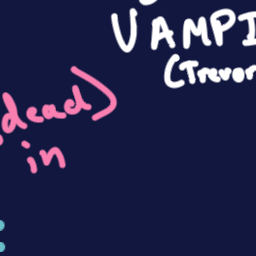 VAMPI
(Trevor
dead)
in